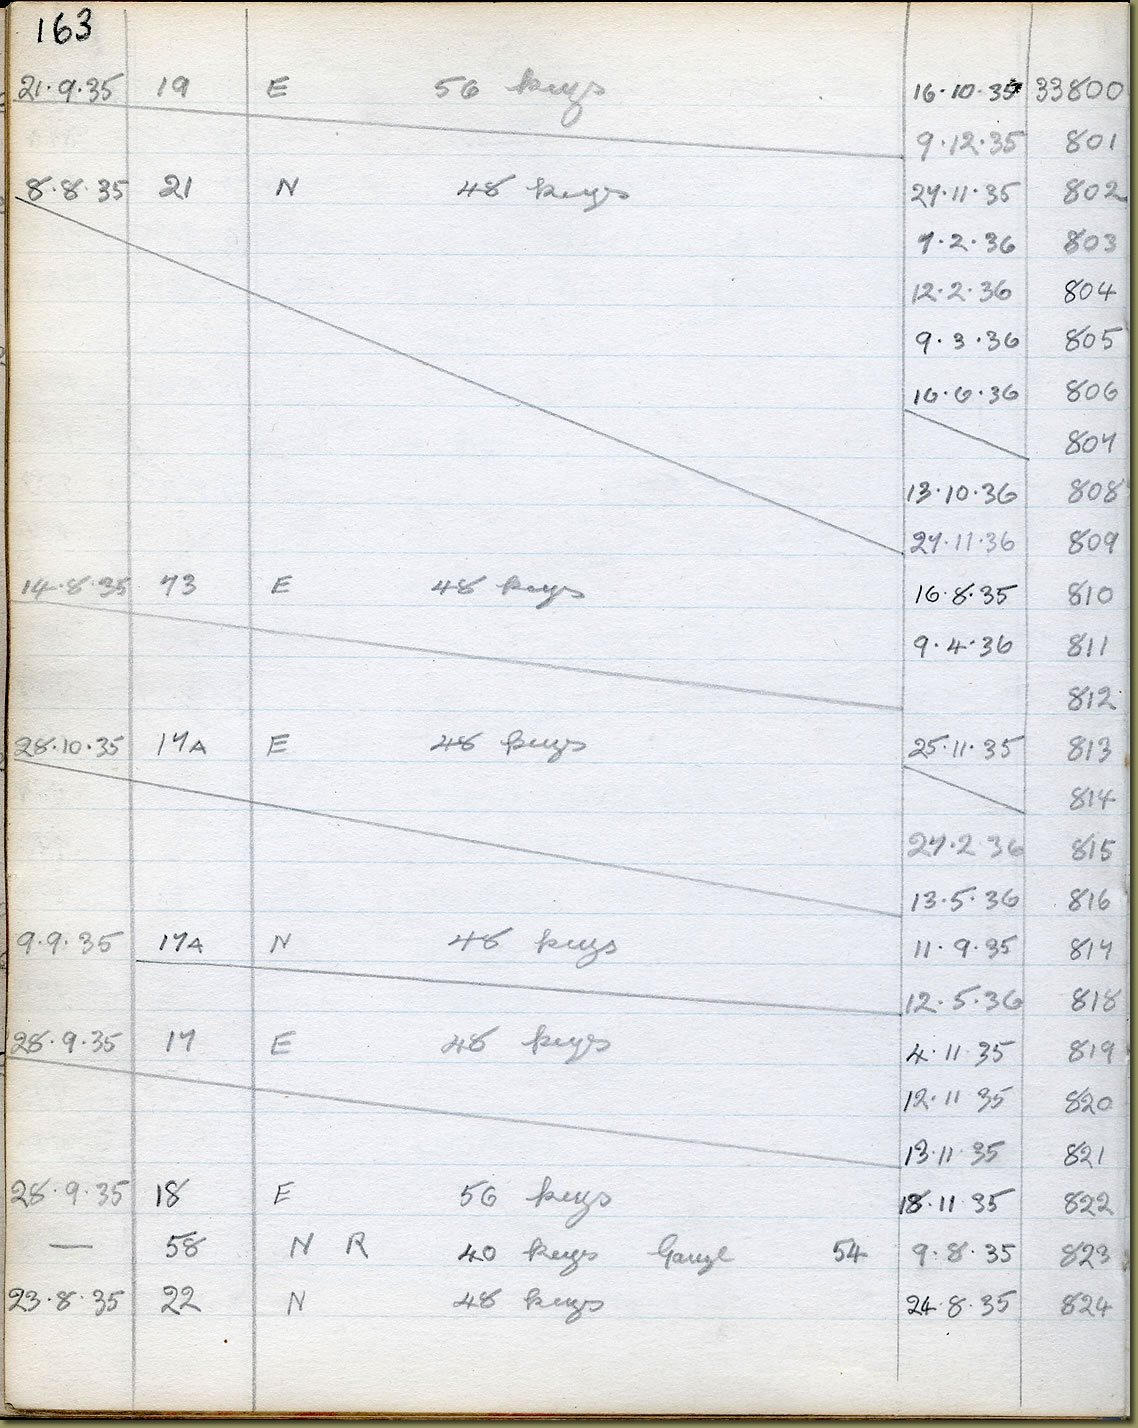 163
21·9·35 19 E 56 keys 16·10·35 33800
9·12·35 801
8·8·35 21 N 48 keys 27·11·35 802
7·2·36 803
12·2·36 804
9·3·36 805
16·6·36 806
807
13·10·36 808
27·11·36 809
14·8·35 73 E 48 keys 16·8·35 810
9·4·36 811
812
28·10·35 17A E 48 keys 25·11·35 813
814
27·2 36 815
13·5·36 816
9·9·35 17A N 48 keys 11·9·35 817
12·5·36 818
28·9·35 17 E 48 keys 4·11·35 819
12·11 35 820
13·11·35 821
28·9·35 18 E 56 keys 18·11·35 822
— 58 N R 40 keys 54 9·8·35 823
23·8·35 22 N 48 keys 24·8·35 824